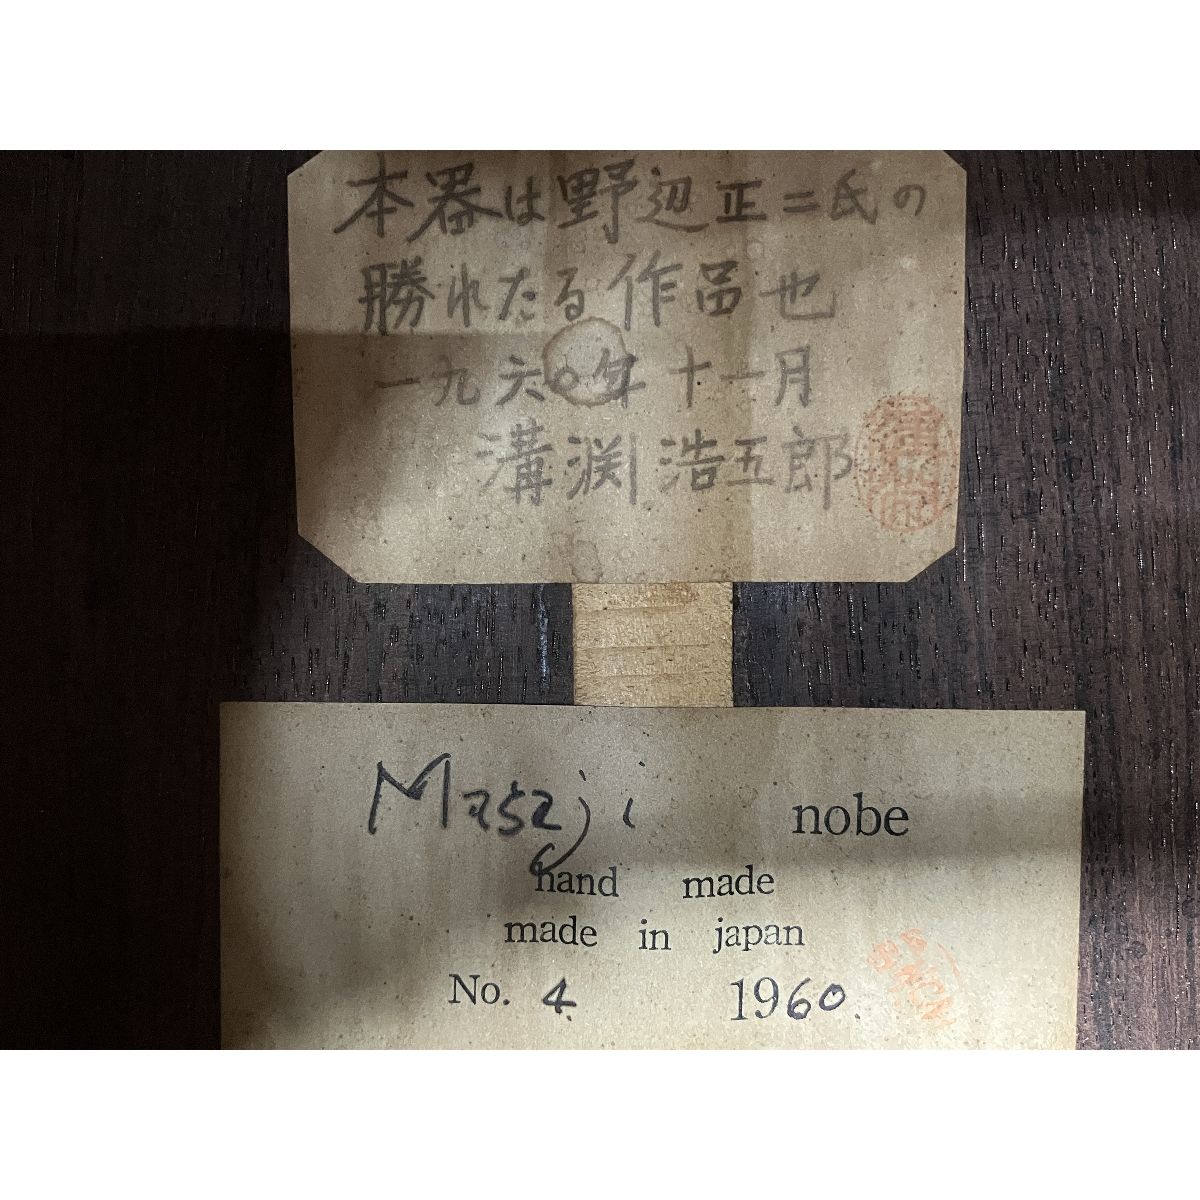 本器は野辺正二氏の
勝れたる作品也
一九六〇年十一月
溝渕浩五郎
Masaji nobe
hand made
made in japan
No. 4. 1960.